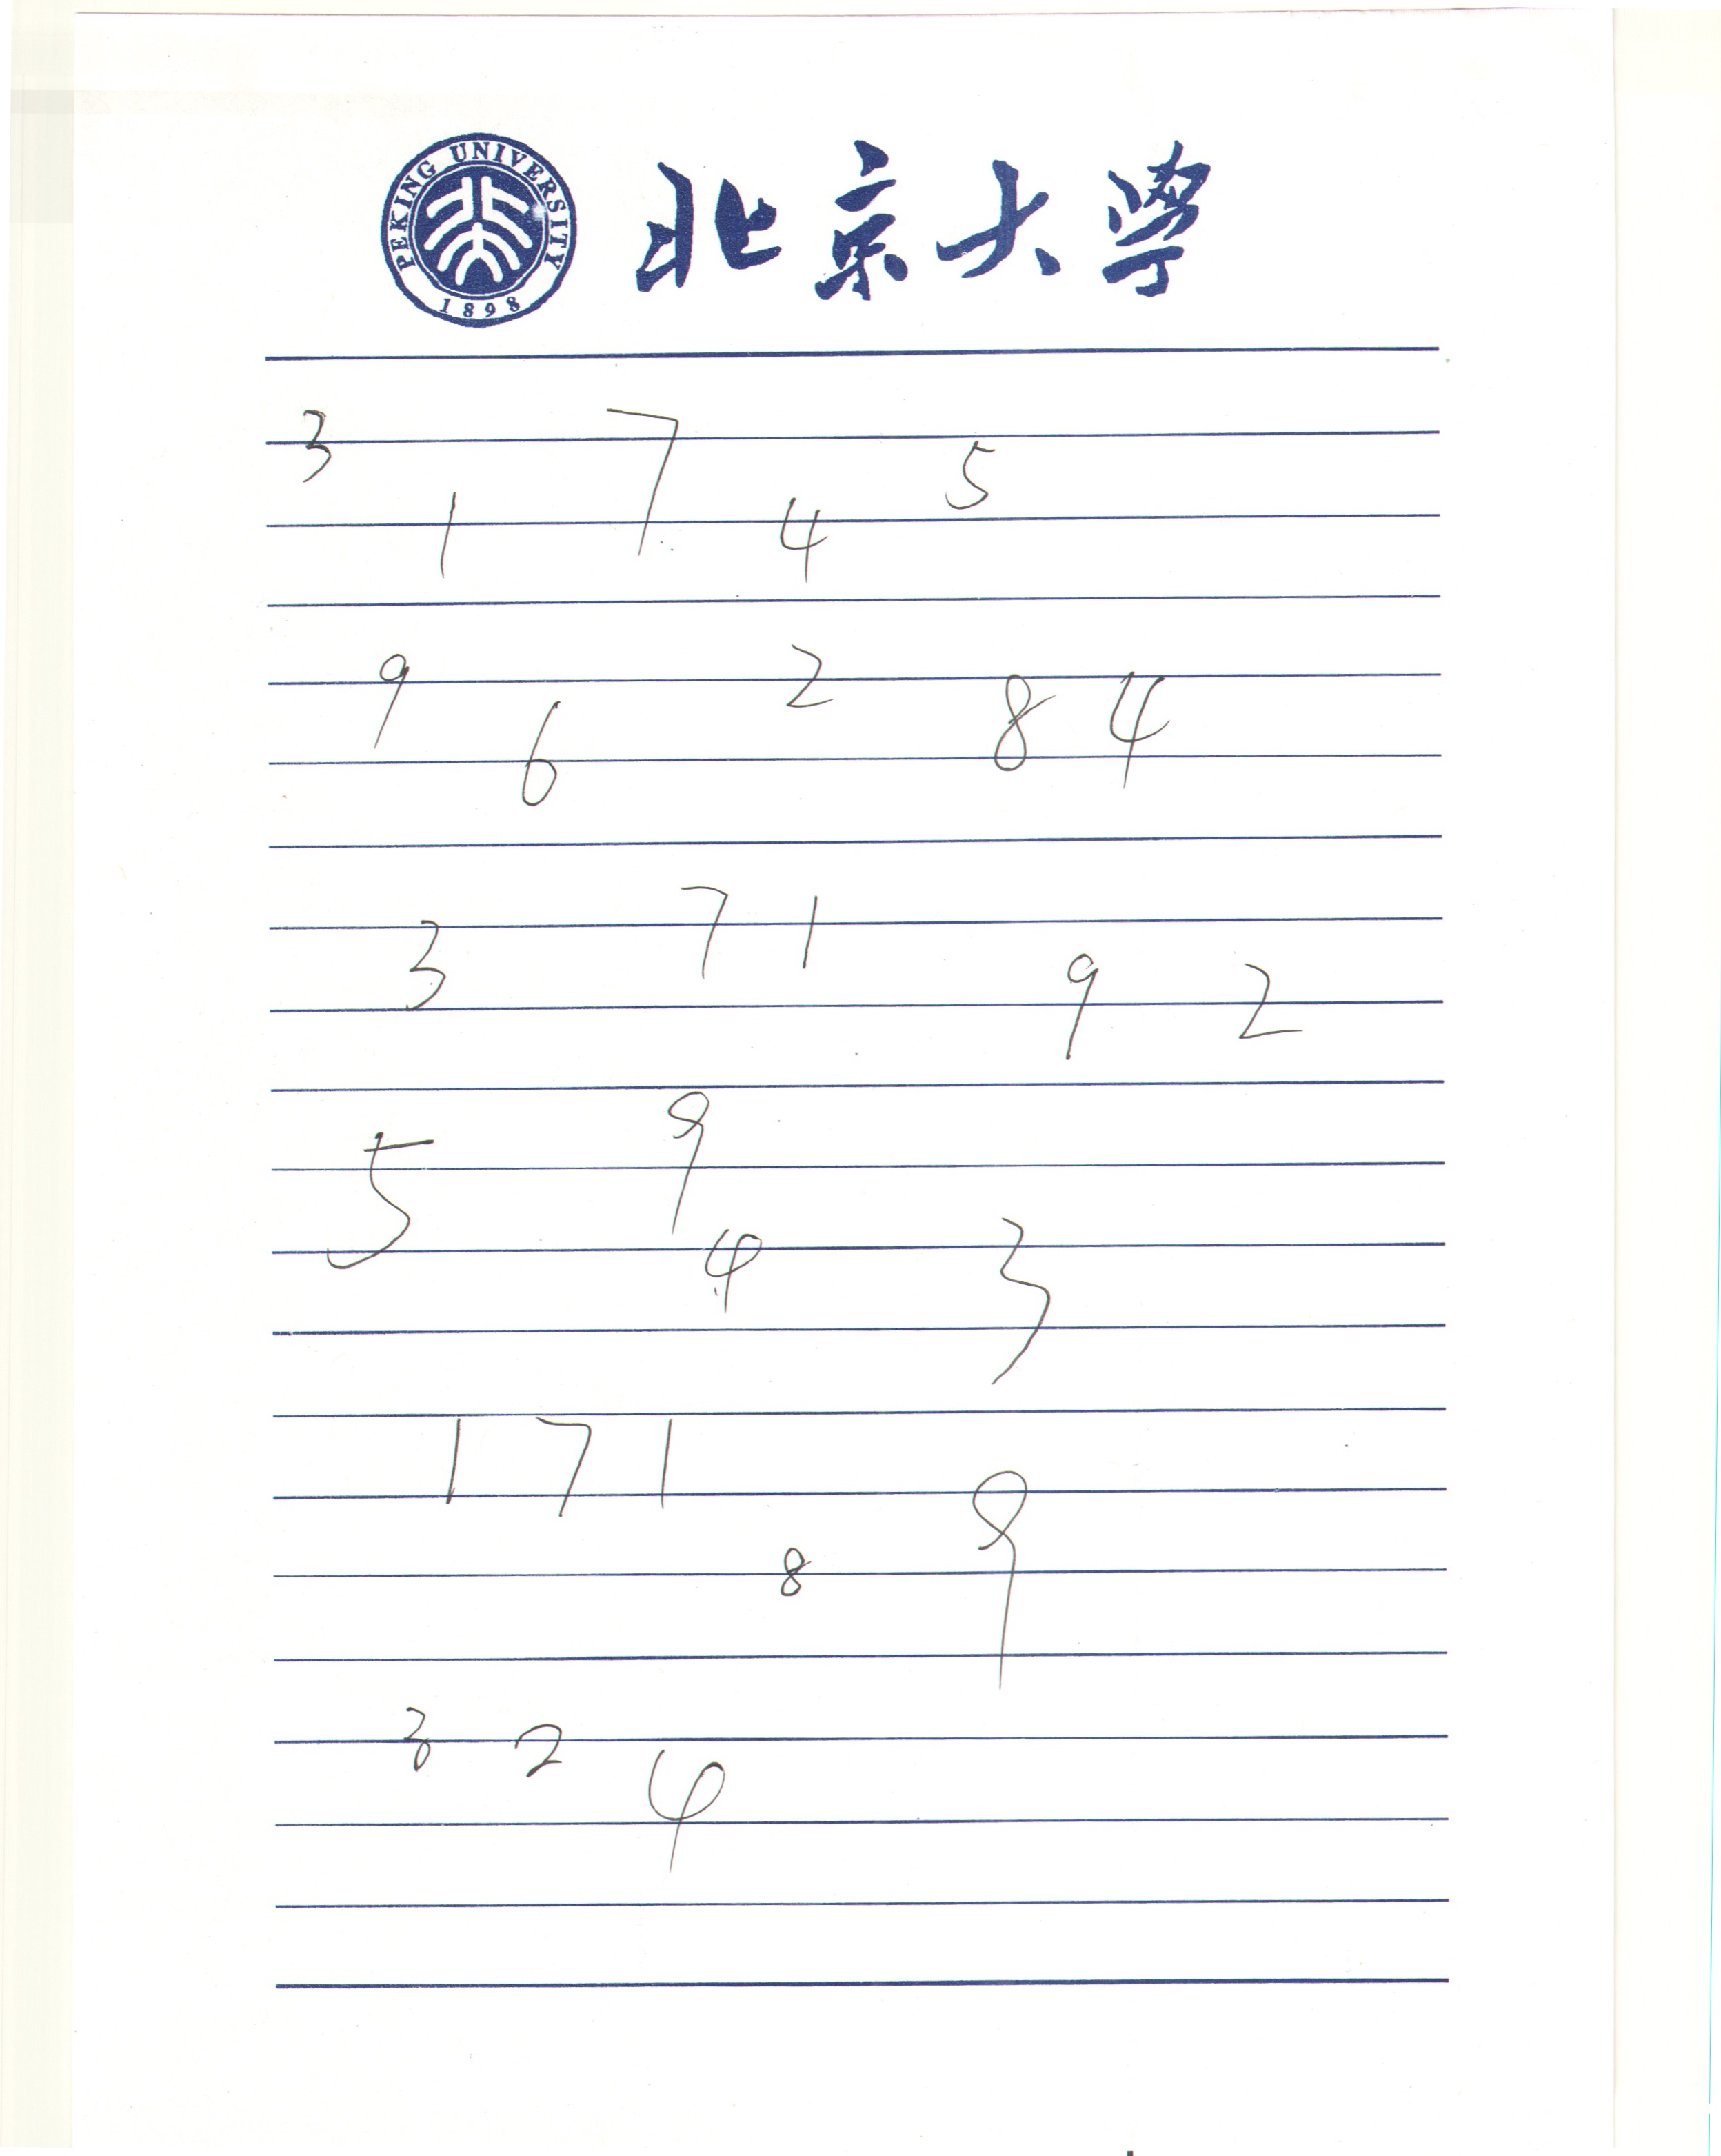 PEKING UNIVERSITY 1898 北京大學
3 1 7 4 5
9 6 2 8 4
3 7 1 9 2
5 9 4 3
1 7 1 8 9
3 2 4